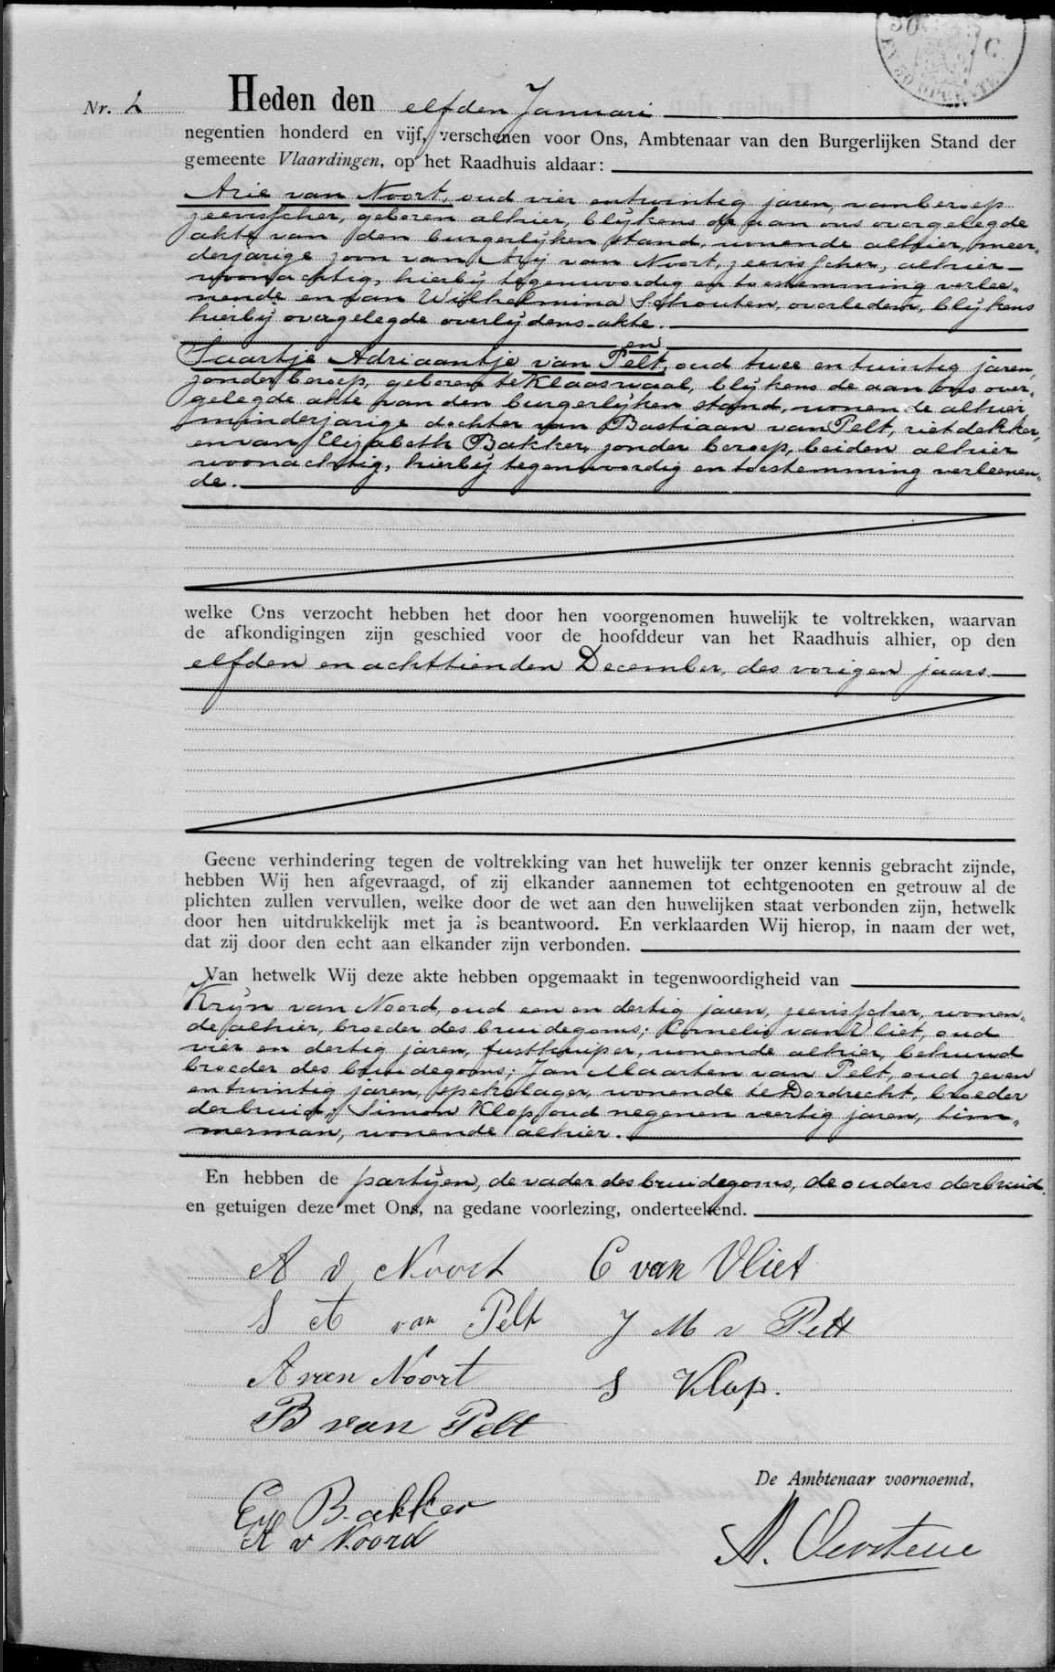 Nr. 2 Heden den elfden Januari
negentien honderd en vijf, verschenen voor Ons, Ambtenaar van den Burgerlijken Stand der
gemeente Vlaardingen, op het Raadhuis aldaar:
Arie van Noort, oud vier en twintig jaren, van beroep
zeevisscher, geboren alhier, blijkens de aan ons overgelegde
akte van den burgerlijken stand, wonende alhier, meer-
derjarige zoon van Arij van Noort, zeevisscher, alhier
woonachtig, hierbij tegenwoordig en toestemming verlee-
nende en van Wilhelmina Schouten, overleden, blijkens
hierbij overgelegde overlijdens-akte.
en
Saartje Adriaantje van Pelt, oud twee en twintig jaren,
zonder beroep, geboren te Klaaswaal, blijkens de aan ons over-
gelegde akte van den burgerlijken stand, wonende alhier
minderjarige dochter van Bastiaan van Pelt, rietdekker,
en van Elizabeth Bakker, zonder beroep, beiden alhier
woonachtig, hierbij tegenwoordig en toestemming verleenen-
de.
welke Ons verzocht hebben het door hen voorgenomen huwelijk te voltrekken, waarvan
de afkondigingen zijn geschied voor de hoofddeur van het Raadhuis alhier, op den
elfden en achttienden December, des vorigen jaars.
Geene verhindering tegen de voltrekking van het huwelijk ter onzer kennis gebracht zijnde,
hebben Wij hen afgevraagd, of zij elkander aannemen tot echtgenooten en getrouw al de
plichten zullen vervullen, welke door de wet aan den huwelijken staat verbonden zijn, hetwelk
door hen uitdrukkelijk met ja is beantwoord. En verklaarden Wij hierop, in naam der wet,
dat zij door den echt aan elkander zijn verbonden.
Van hetwelk Wij deze akte hebben opgemaakt in tegenwoordigheid van
Krijn van Noord, oud een en dertig jaren, zeevisscher, wonen-
de alhier, broeder des bruidegoms; Cornelis van Vliet, oud
vier en dertig jaren, fustkuiper, wonende alhier, behuwd
broeder des bruidegoms; Jan Maarten van Pelt, oud zeven
en twintig jaren, spekslager, wonende te Dordrecht, broeder
der bruid; Simon Klop, oud negen en veertig jaren, tim-
merman, wonende alhier.
En hebben de partijen, de vader des bruidegoms, de ouders der bruid
en getuigen deze met Ons, na gedane voorlezing, onderteekend.
A v Noort C van Vliet
S A van Pelt J M v Pelt
A van Noort S Klop.
B van Pelt
De Ambtenaar voornoemd,
Bakker
K v Noord